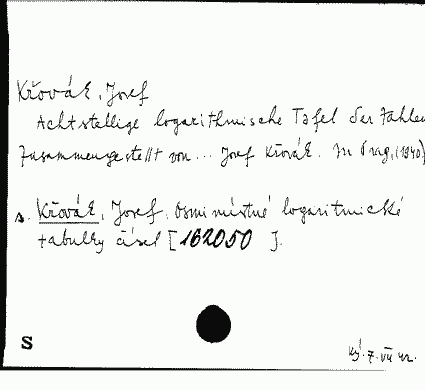 Křovák, Josef
Achtstellige logarithmische Tafel der Zahlen
Zusammengestellt von... Josef Křovák. In Prag, (1940)
s. Křovák, Josef. Osmimístné logaritmické
tabulky čísel [162050 ].
S
7. VII 42.